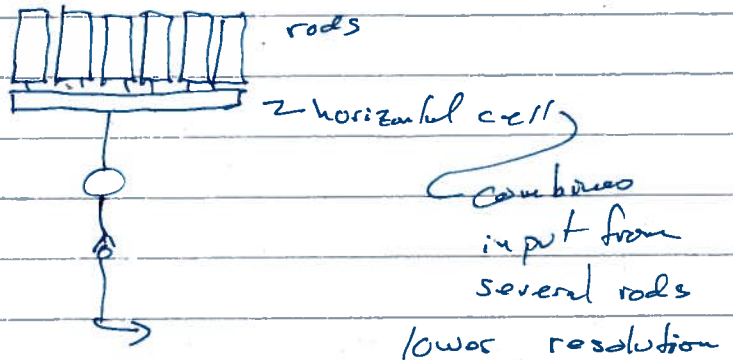 rods
horizontal cell
combines
input from
several rods
lower resolution